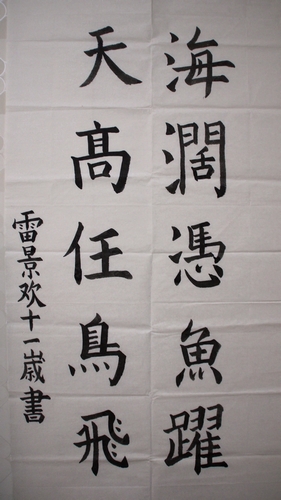 海濶憑魚躍
天高任鳥飛
雷景欢十一歲書